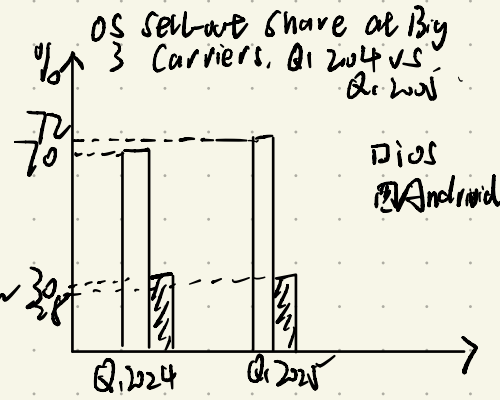 OS sell-out share at Big
3 Carriers. Q1 2024 vs
Q1 2025
%
72
70
30
28
iOS
Android
Q1 2024
Q1 2025